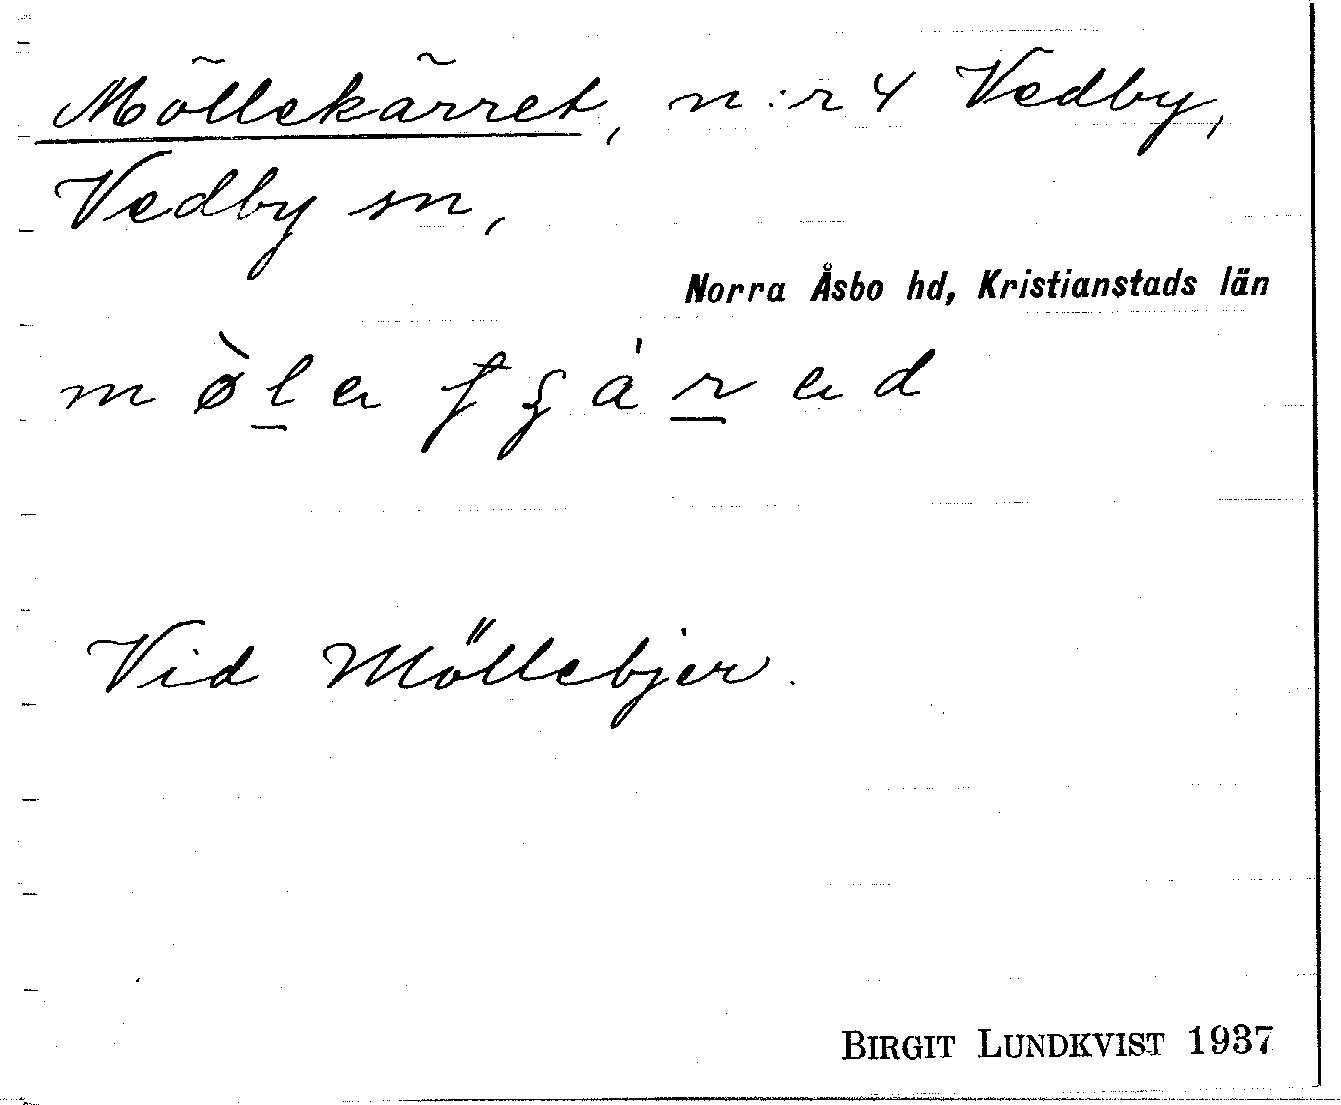 Möllekärret, n:r 4 Vedby,
Vedby sn,
Norra Åsbo hd, Kristianstads län
Vid Möllebjer.
BIRGIT LUNDKVIST 1937